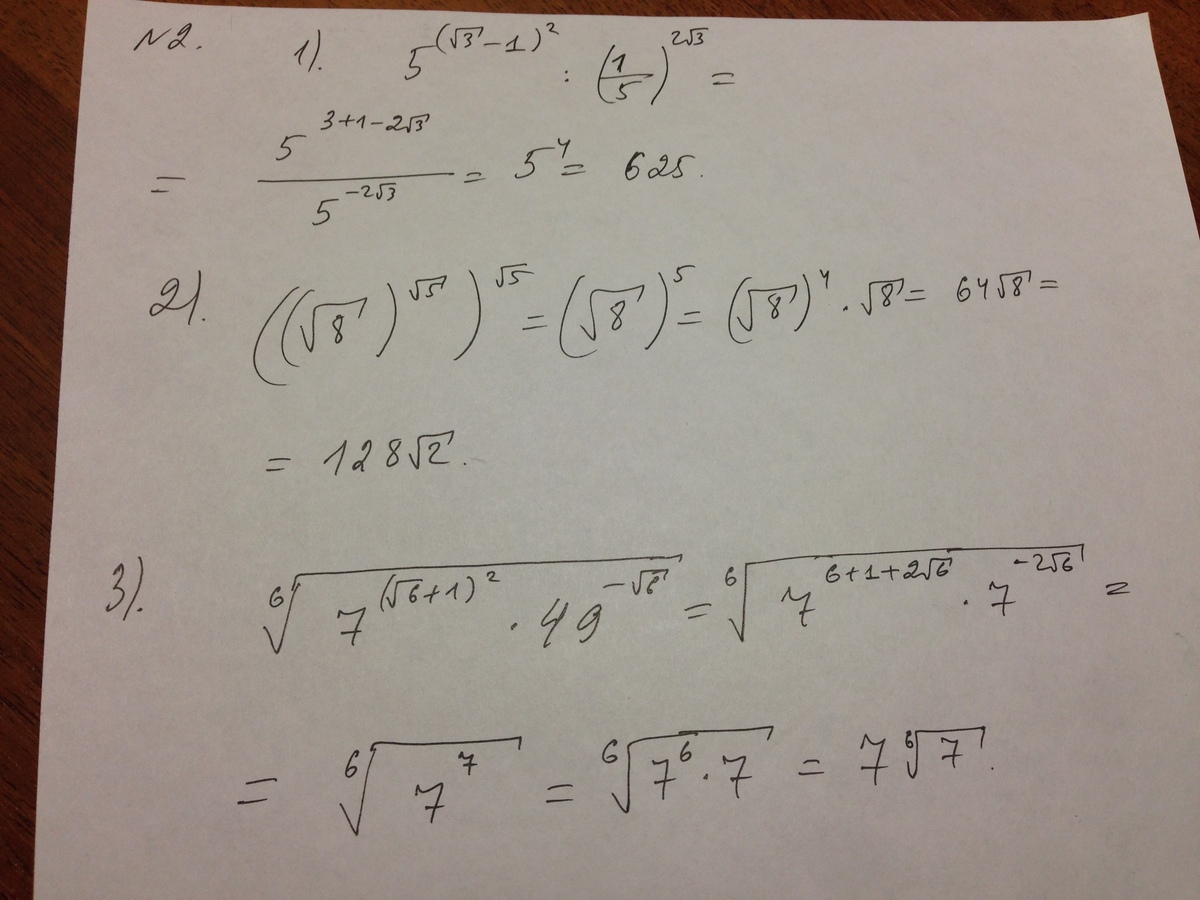 №2. 1). 5^(√3-1)² : (1/5)^2√3 =
= 5^3+1-2√3 / 5^-2√3 = 5^4 = 625.
2). ((√8)^√5)^√5 = (√8)^5 = (√8)^4 · √8 = 64√8 =
= 128√2.
3). ⁶√(7^(√6+1)² · 49^-√6) = ⁶√(7^6+1+2√6 · 7^-2√6) =
= ⁶√(7^7) = ⁶√(7^6 · 7) = 7 ⁶√7.